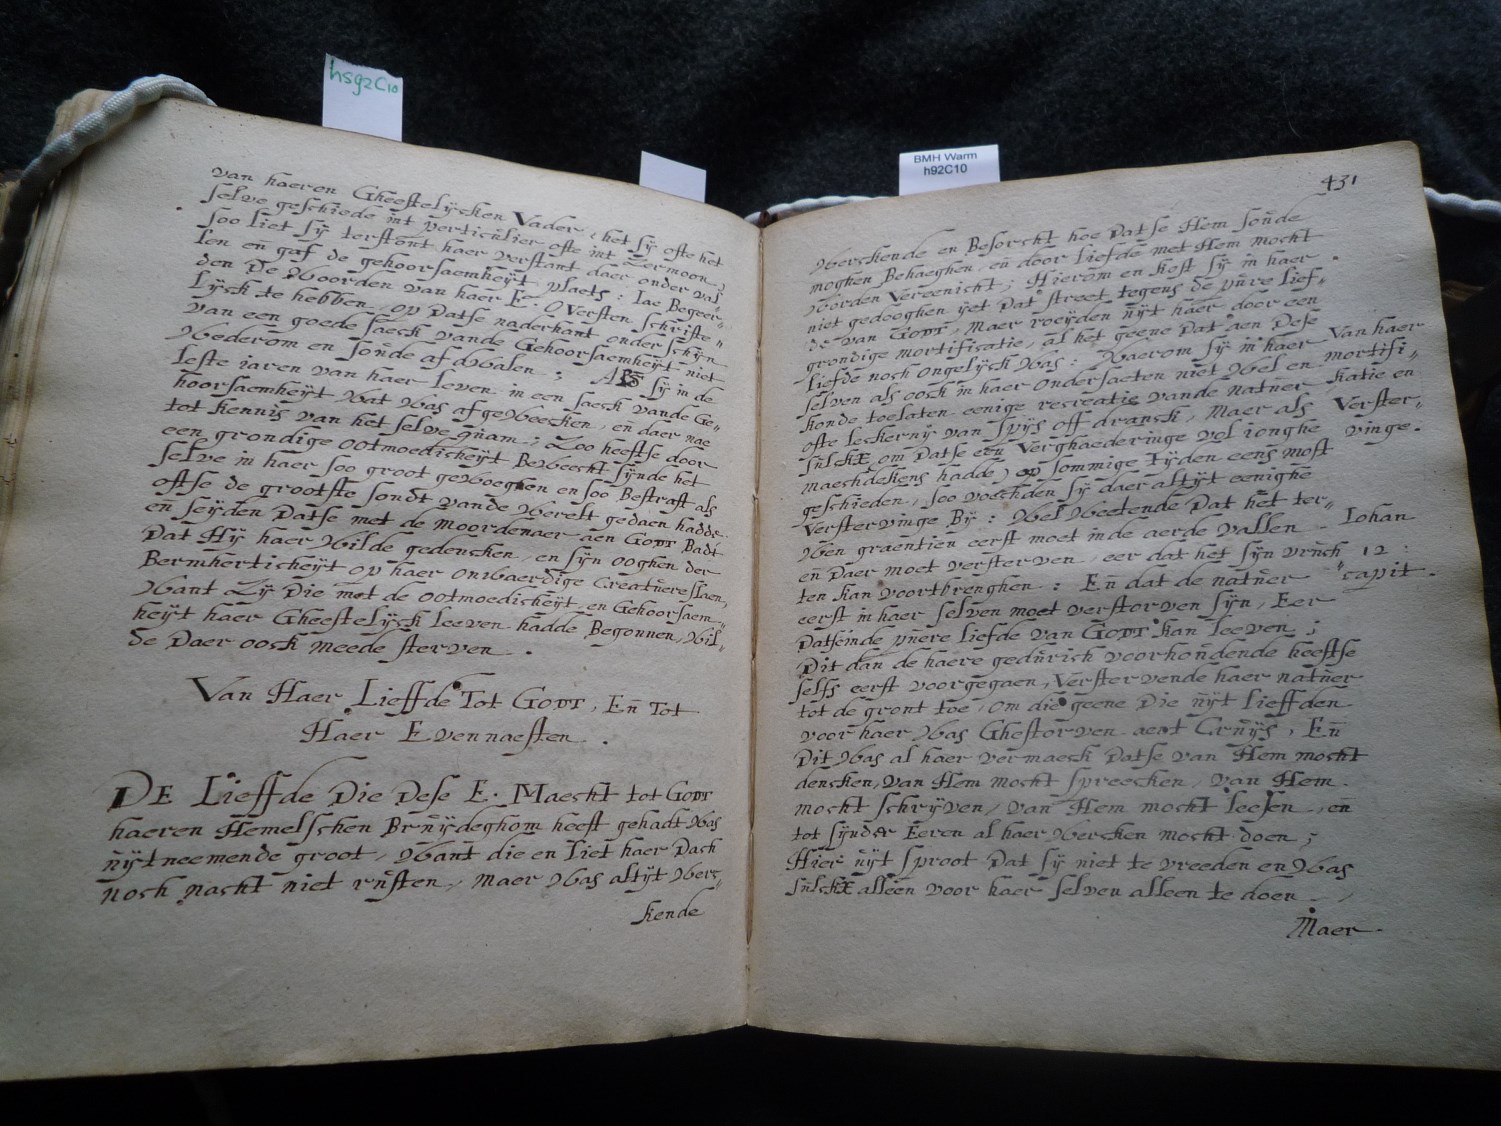 hs92C10
BMH Warm
h92C10
van haeren Gheestelÿcken Vader, het sÿ ofte het
selve geschiede int perticulier ofte int Sermoon,
soo liet sÿ terstont haer verstant daer onder val
len en gaf de gehoorsaemheÿt plaets: Iae Begeer-
den De Woorden van haer Ee. Oversten schrifte-
lÿck te hebben, op Datse naderhant onder schÿn
van een goede saeck vande Gehoorsaemheÿt niet
Wederom en soude af dwalen; Als sÿ in de
leste iaren van haer leven in een saeck vande Ge-
hoorsaemheÿt Wat Was afgeWeecken, en daer nae
tot kennis van het selve quam; Soo heeftse door
een grondige ootmoedicheÿt BeWeecht sÿnde het
selve in haer soo groot geWoeghen en soo Bestraft als
oftse de grootste sondt vande Werelt gedaen hadde.
en seÿden Datse met de Moordenaer aen Godt Badt
Dat Hÿ haer Wilde gedencken, en sÿn ooghen der
Bermherticheÿt op haer onwaerdige Creatuere slaen,
Want Sÿ Die met de ootmoedicheÿt en Gehoorsaem-
heÿt haer Gheestelÿck leeven hadde Begonnen, Wil-
de Daer oock meede sterven.
Van Haer Lieffde Tot Godt, En Tot
Haer Evennaesten.
De Lieffde Die Dese E. Maecht tot Godt
haeren Hemelschen Bruÿdeghom heeft gehadt Was
uÿtneemende groot, Want die en liet haer Dach
noch nacht niet rusten, Maer Was altÿt Werc-
kende
431
Werckende en Besorcht hoe Datse Hem soude
moghen Behaeghen, en door Liefde met Hem mocht
Worden Vereenicht; Hierom en kost sÿ in haer
niet gedooghen ÿet Dat street tegens de pure lief-
de van Godt, Maer roeÿden uÿt haer door een
grondige mortificatie, al het geene Dat aen Dese
liefde noch ongelÿck Was: Waerom sÿ in haer
selven als oock in haer ondersaeten niet Wel en
konde toelaten eenige recreatie vande Natuer
ofte leckernÿ van spÿs off dranck, Maer als
sulckx om Datse een Verghaederinge vol ionghe
maechdekens hadde, op sommige tÿden eens most
geschieden, soo voechden sÿ daer altÿt eenighe
Verstervinge Bÿ: Wel Weetende Dat het ter-
Wen graentien eerst moet in de aerde vallen
en Daer moet versterven, eer dat het sÿn vruch
ten kan voortbrenghen: En dat de natuer
eerst in haer selven moet verstorven sÿn, Eer
Datse inde puere liefde van Godt kan leeven;
Dit dan de haere gedurich voorhoudende heeftse
selfs eerst voorgegaen, Verstervende haer natuer
tot de gront toe, om die geene Die uÿt lieffden
voor haer Was Ghestorven aent Cruÿs, En
Dit Was al haer vermaeck Datse van Hem mocht
dencken, van Hem mocht spreecken, van Hem
mocht schrÿven, van Hem mocht leesen, en
tot sÿnder Eeren al haer Wercken mocht doen;
Hier uÿt sproot Dat sÿ niet te vreeden en Was
sulckx alleen voor haer selven alleen te doen
Maer
Van haer
mortifi-
katie en
Verster-
vinge.
Iohan
12:
capit.